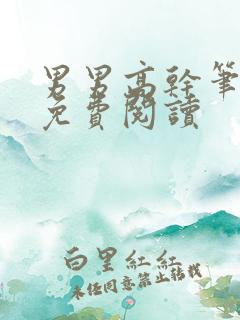 男男高幹筆
免費閱讀
白里紅紅
未任同意禁止轉載